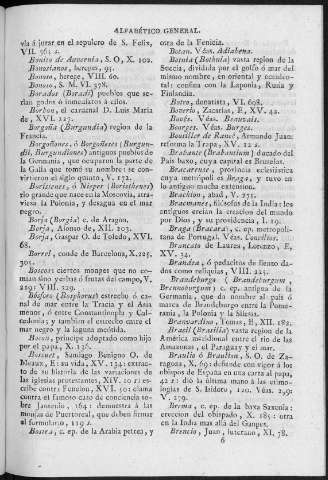 ALFABÉTICO GENERAL.
vía á jurar en el sepulcro de S. Felix,
VII. 361 s.
Bonito de Auvernia, S, O, X. 102.
Bonosianos, hereges, 93.
Bonoso, herege, VIII. 60.
Bonoso, S. M. VI. 378.
Borados (Boradi) pueblos que se-
rían godos ó inmediatos á ellos.
Borbon, el cardenal D. Luis Maria
de, XVI. 225.
Borgoña (Burgundia) region de la
Francia.
Borgoñones, ó Borgoñeses (Burgun-
dii, Burgundiones) antiguos pueblos de
la Germania, que ocuparon la parte de
la Galia que tomó su nombre: se con-
virtieron el siglo quinto, V. 172.
Borístenes, ó Nieper (Boristhenes)
rio grande que nace en la Moscovia, atra-
viesa la Polonia, y desagua en el mar
negro.
Borja (Borgia) c. de Aragon.
Borja, Alonso de, XII. 203.
Borja, Gaspar O. de Toledo, XVI.
68.
Borrel, conde de Barcelona, X. 225,
301.
Boscoos ciertos monges que no co-
mian sino yerbas ó frutas del campo, V.
219: VIII. 229.
Bósforo (Bosphorus) estrecho ó ca-
nal de mar entre la Tracia y el Asia
menor, ó entre Constantinopla y Cal-
cedonia; y tambien el estrecho entre el
mar negro y la laguna meótida.
Boson, príncipe adoptado como hijo
por el papa, X. 136.
Bossuet, Santiago Benigno O. de
Meaux, E: su vida, XV. 134: extrac-
to de su historia de las variaciones de
las iglesias protestantes, XIV. 10 s: es-
cribe contra Fenelon, XVI. 50: clama
contra el famoso caso de conciencia so-
bre Jansenio, 164: demuestra á las
monjas de Puertoreal, que deben firmar
el formulario, 119 s.
Bostra, c. ep. de la Arabia petrea, y
otra de la Fenicia.
Botan. Véas. Adiabena.
Botnia (Bothnia) vasta region de la
Suecia, dividida por el golfo ó mar del
mismo nombre, en oriental y occiden-
tal: confina con la Laponia, Rusia y
Finlandia.
Botro, donatista, VI. 698.
Boverio, Zacarías, E, XV. 42.
Bouës. Véas. Beauvais.
Bourges. Véas. Burges.
Bouillier de Rancé, Armando Juan:
reforma la Trapa, XV. 12 s.
Brabante (Brabantium) ducado del
País baxo, cuya capital es Bruselas.
Bracarense, provincia eclesiástica
cuya metrópoli es Braga, y tuvo en
lo antiguo mucha extension.
Brachion, abad, V. 251.
Bracmanes, filósofos de la India: los
antiguos creían la creacion del mundo
por Dios, y su providencia, I. 10.
Braga (Bracara) c. ep. metropoli-
tana de Portugal. Véas. Concilios.
Brancato de Laures, Lorenzo, E,
XV. 34.
Brandéa, ó pedacitos de lienzo da-
dos como reliquias, VIII. 225.
Brandeburgo (Brandeburgum,
Brennoburgum) c. ep. antigua de la
Germania, que da nombre al país ó
marca de Brandeburgo entre la Pome-
rania, la Polonia y la Silesia.
Branzuartino, Tomas, E, XII. 182.
Brasil (Brasilia) vasta region de la
América meridional entre el rio de las
Amazonas, el Paraguay y el mar.
Braulio ó Braulion, S. O. de Za-
ragoza, X. 69: defiende con vigor á los
obispos de España en una carta al papa,
42 s: dió la última mano á las etimo-
logías de S. Isidoro, 120. Véas. 249:
V. 279.
Brema, c. ep. de la baxa Saxonia:
ereccion del obispado, X. 185: otra
en la India mas allá del Ganges.
Brencio, Juan, luterano, XI. 78.
6